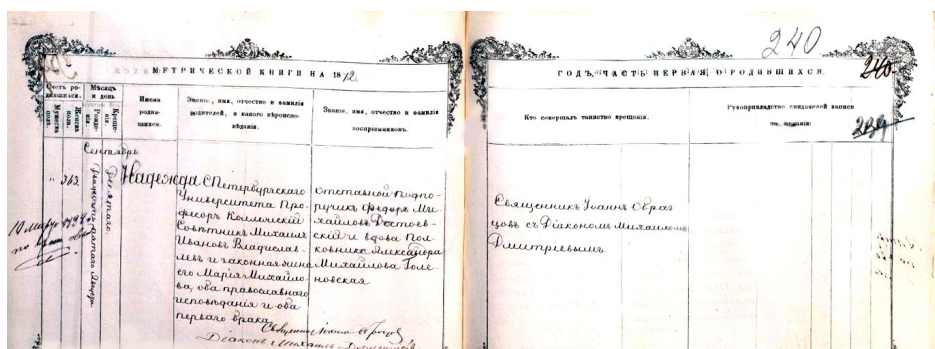 240
МЕТРИЧЕСКОЙ КНИГИ НА 1872
ГОДЪ, ЧАСТЬ ПЕРВАЯ, О РОДИВШИХСЯ.
240
Счетъ ро-
дившихся.
Мужеска
полъ.
Женска
полъ.
Мѣсяцъ
и день
Рожде-
нія.
Креще-
нія.
Имена
родив-
шихся.
Званіе, имя, отчество и фамилія
родителей, и какого вѣроиспо-
вѣданія.
Званіе, имя, отчество и фамилія
воспріемниковъ.
Кто совершалъ таинство крещенія.
Рукоприкладство свидѣтелей записи
по желанію
Сентябрь
" 363.
Десятаго.
Надежда
С Петербургскаго
Университета Про-
фесоръ Коллежскій
Совѣтникъ Михаилъ
Ивановъ Владислав-
левъ и законная жена
его Марія Михайло-
ва, оба православнаго
исповѣданія и оба
перваго брака
Отставной Подпо-
ручикъ Федоръ Ми-
хайловъ Достоев-
скій и вдова Пол-
ковника Александра
Михайлова Голе-
новская
Священникъ Іоаннъ Образ
цовъ съ Діакономъ Михаиломъ
Дмитріевымъ.
Священникъ Іоаннъ
Діаконъ Михаилъ Дмитріевъ